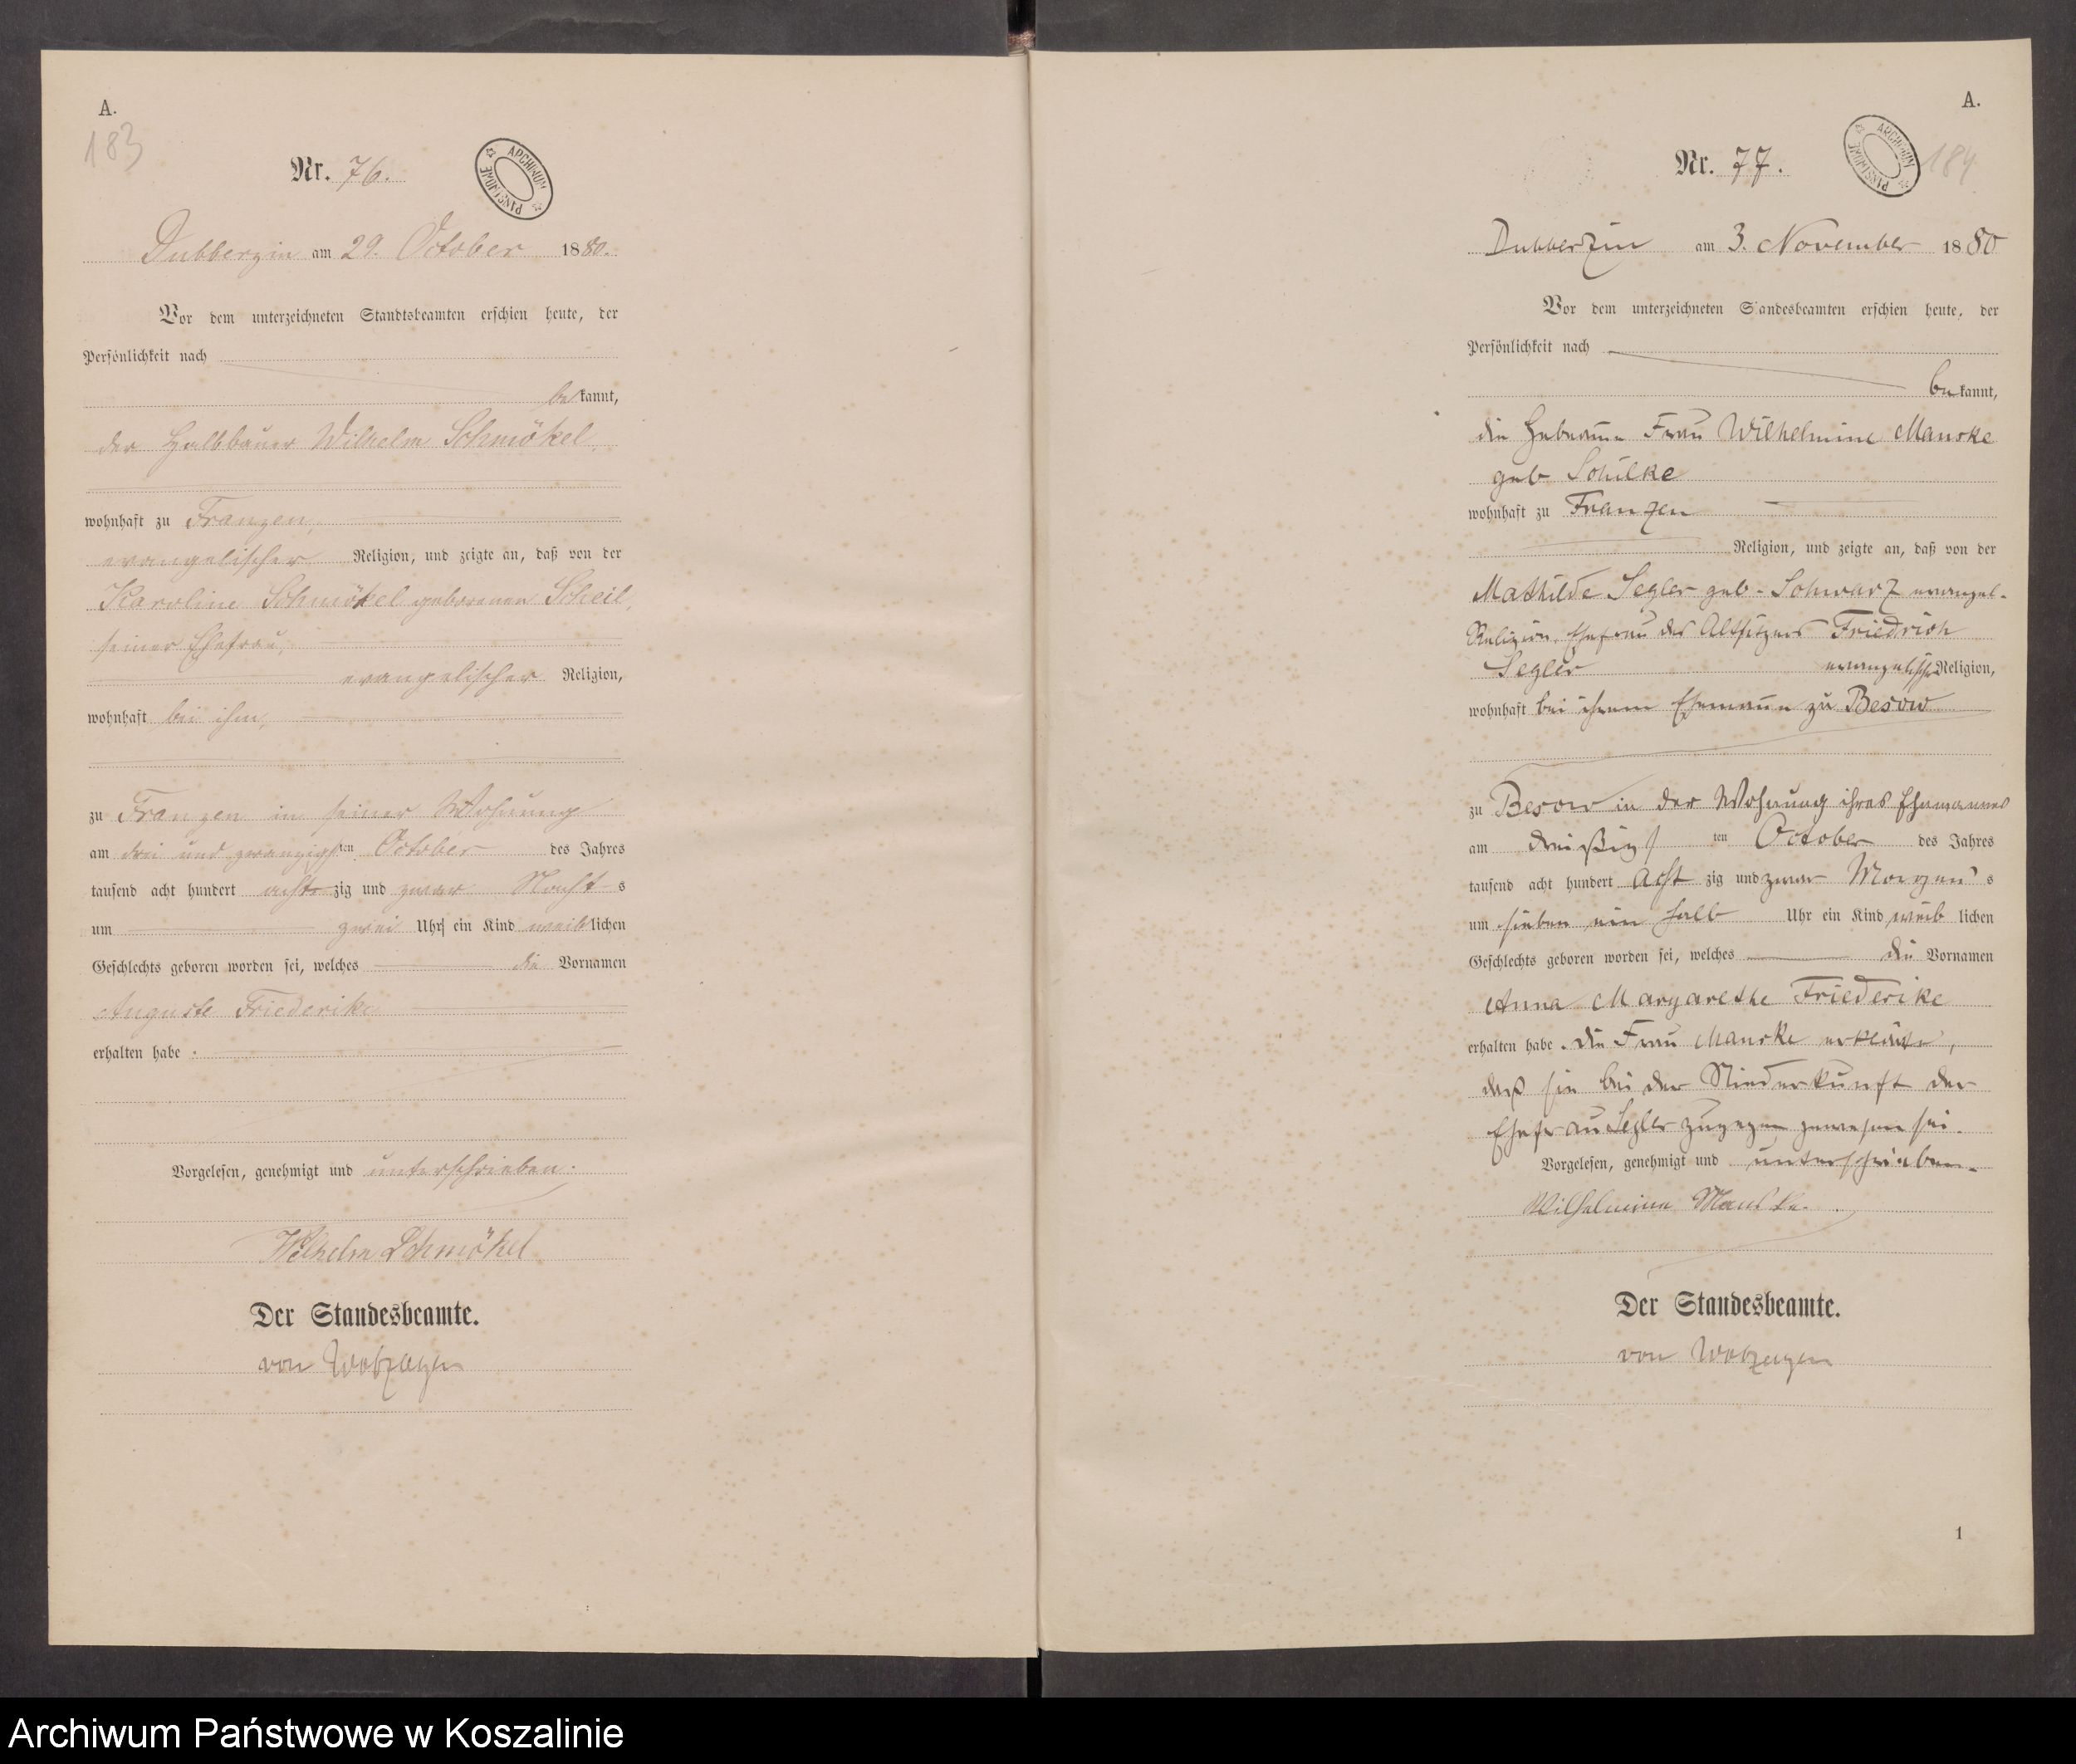 A.
183
Nr. 76.
ARCHIWUM PAŃSTWOWE
Dubberzin am 29. October 1880.
Vor dem unterzeichneten Standtsbeamten erschien heute, der
Persönlichkeit nach
bekannt,
der Halbbauer Wilhelm Schmökel
wohnhaft zu Franzen,
evangelischer Religion, und zeigte an, daß von der
Karoline Schmökel geborenen Scheil,
seiner Ehefrau,
evangelischer Religion,
wohnhaft bei ihm,
zu Franzen in seiner Wohnung
am drei und zwanzigsten October des Jahres
tausend acht hundert achtzig und zwar Nachts
um zwei Uhr ein Kind weiblichen
Geschlechts geboren worden sei, welches die Vornamen
Auguste Friederike
erhalten habe.
Vorgelesen, genehmigt und unterschrieben.
Wilhelm Schmökel
Der Standesbeamte.
von
A.
184
Nr. 77.
ARCHIWUM PAŃSTWOWE
Dubberzin am 3. November 1880
Vor dem unterzeichneten Standesbeamten erschien heute, der
Persönlichkeit nach
bekannt,
die Hebamme Frau Wilhelmine Manske
geb Schülke
wohnhaft zu Franzen
Religion, und zeigte an, daß von der
Mathilde Segler geb. Schwarz evangel.
Religion. Ehefrau des Altsitzers Friedrich
Segler evangelischer Religion,
wohnhaft bei ihrem Ehemann zu Besow
zu Besow in der Wohnung ihres Ehemannes
am dreißigsten October des Jahres
tausend acht hundert achtzig und zwar Morgens
um sieben ein halb Uhr ein Kind weiblichen
Geschlechts geboren worden sei, welches die Vornamen
Anna Margarethe Friederike
erhalten habe. Die Frau Manske erklärte,
daß sie bei der Niederkunft der
Ehefrau Segler zugegen gewesen sei.
Vorgelesen, genehmigt und unterschrieben.
Wilhelmine Manske.
Der Standesbeamte.
von
1
Archiwum Państwowe w Koszalinie